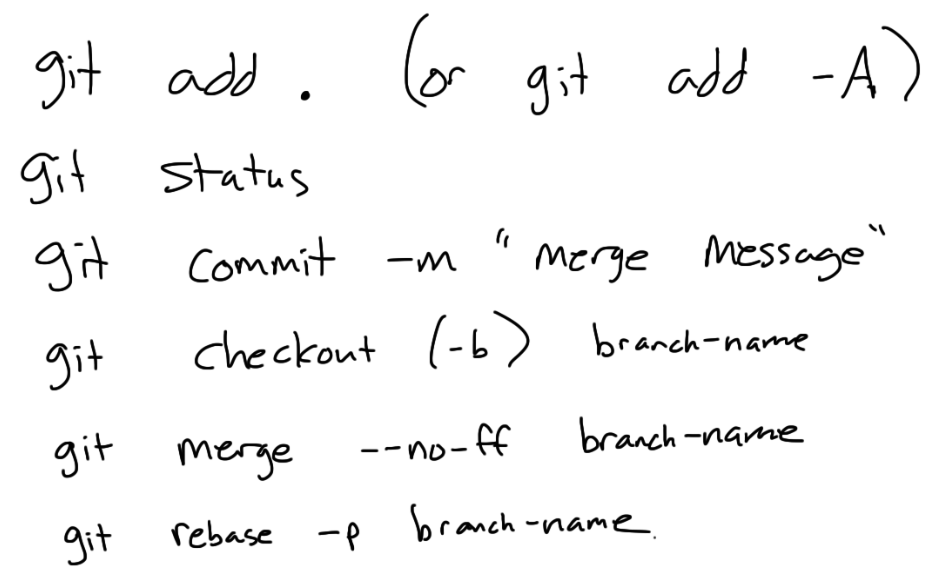 git add . (or git add -A)
git status
git commit -m "merge message"
git checkout (-b) branch-name
git merge --no-ff branch-name
git rebase -p branch-name.